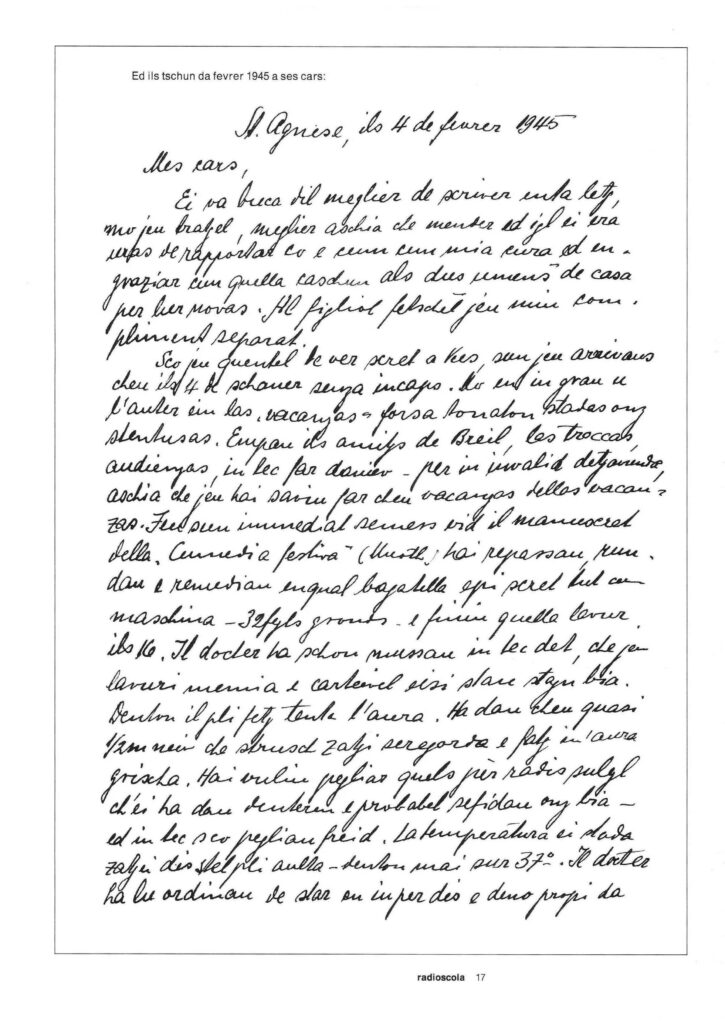 Ed ils tschun da fevrer 1945 a ses cars:
St. Agnese, ils 4 de fevrer 1945
Mes cars,
Ei va buca dil meglier de scriver enta letg,
mo jeu tratgel, meglier aschia che menter ed igl ei era
uras de rapportar co e cum cun mia cura ed en-
graziar cun quella caschun als dus umens de casa
per lur novas. Al figliol fetschel jeu min com-
pliment separat.
Sco jeu quentel de ver scret a Vus, sun jeu arrivaus
cheu ils 4 de schaner senza incaps. Mo en in grau u
l'auter ein las "vacanzas" forsa tonaton stadas ong
stentusas. Empau ils amitgs de Breil, las troccas,
audienzas, in tec far damev - per in invalid detgavunda,
aschia che jeu hai saviu far cheu vacanzas dellas vacan-
zas. Jeu sun immediat semess vid il manuscret
della "Cumedia festiva" (Muoth) hai repassau, run-
dau e remediau enqual bagatella epi scret tut cun
maschina - 32 fegls gronds - e finiu quella lavur
ils 16. Il docter ha schon mussau in tec det, che jeu
lavuri memia e cartevel eisi stau stgn bia.
Denton il pli fetg tenta l'aura. Ha dau cheu quasi
1/2 m neiv che strusch zatgi seregorda e fatg in'aura
grischa. Hai vuliu pegliar quels pèr radis sulegl
ch'ei ha dau denteren e probabel sefidau ong bia -
ed in tec sco pegliau freid. La temperatura ei stada
zatgei dis stel pli aulta - denton mai sur 37°. Il docter
ha lu ordinau de star en in per dis e deno propi da
radioscola 17